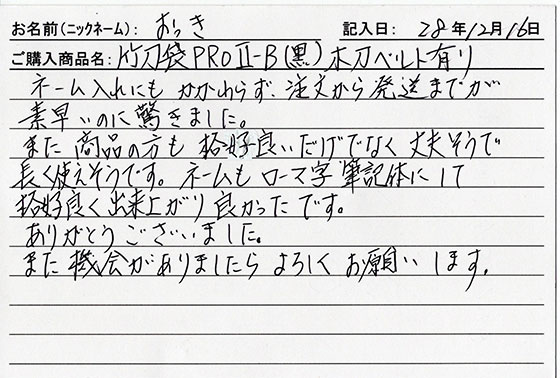 お名前(ニックネーム): おっき 記入日: 28年12月16日
ご購入商品名: 竹刀袋PROⅡ-B(黒)木刀ベルト有り
ネーム入れにもかかわらず、注文から発送までが
素早いのに驚きました。
また商品の方も格好良いだけでなく丈夫そうで
長く使えそうです。ネームもローマ字筆記体にして
格好良く出来上がり良かったです。
ありがとうございました。
また機会がありましたらよろしくお願いします。